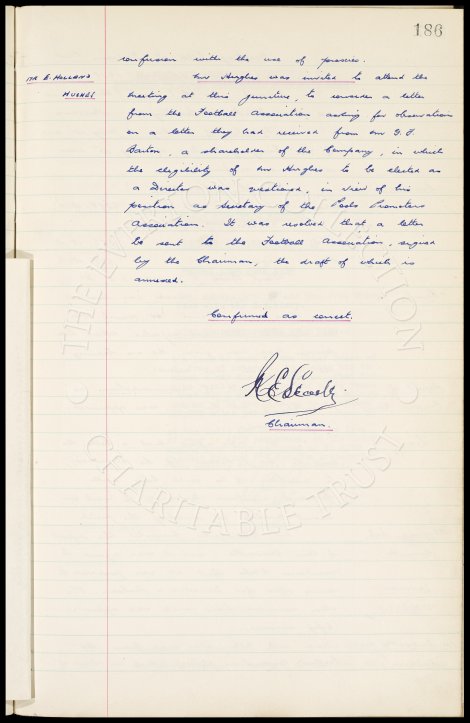 186
confusion with the use of proxies.
MR E. HOLLAND
HUGHES
Mr Hughes was invited to attend the
meeting at this juncture, to consider a letter
from the Football Association asking for observations
on a letter they had received from Mr
Barton, a shareholder of the Company, in which
the eligibility of Mr Hughes to be elected as
a Director was questioned, in view of his
position as Secretary of the Pools Promoters
Association. It was resolved that a letter
be sent to the Football Association, signed
by the Chairman, the draft of which is
annexed.
Confirmed as correct.
Chairman.
THE EVERTON COLLECTION
CHARITABLE TRUST